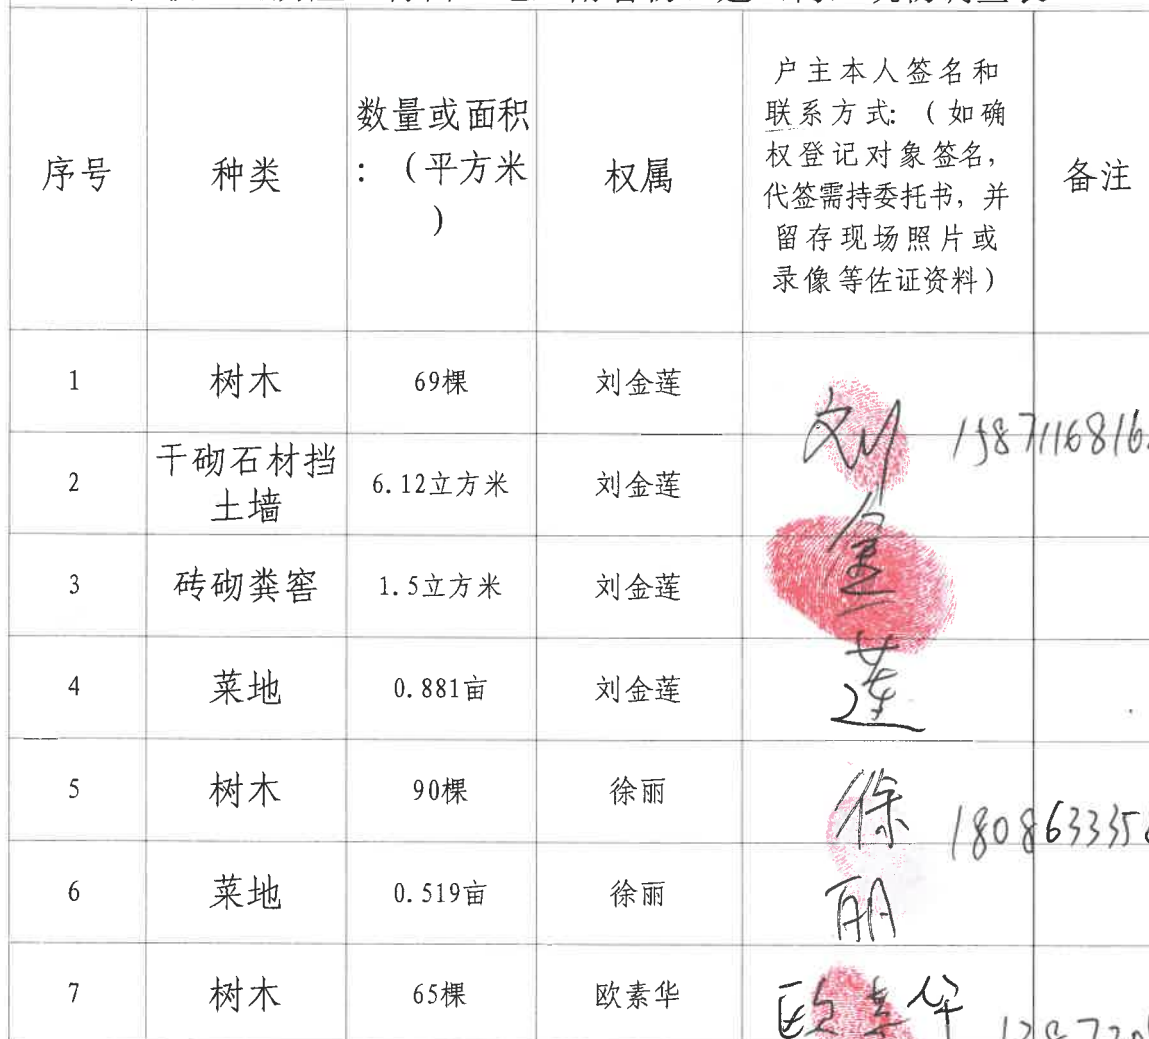 序号 种类 数量或面积:(平方米) 权属 户主本人签名和联系方式:(如确权登记对象签名,代签需持委托书,并留存现场照片或录像等佐证资料) 备注
1 树木 69棵 刘金莲 刘金莲
2 干砌石材挡土墙 6.12立方米 刘金莲
3 砖砌粪窖 1.5立方米 刘金莲
4 菜地 0.881亩 刘金莲
5 树木 90棵 徐丽 徐丽 180863335
6 菜地 0.519亩 徐丽
7 树木 65棵 欧素华 欧素华